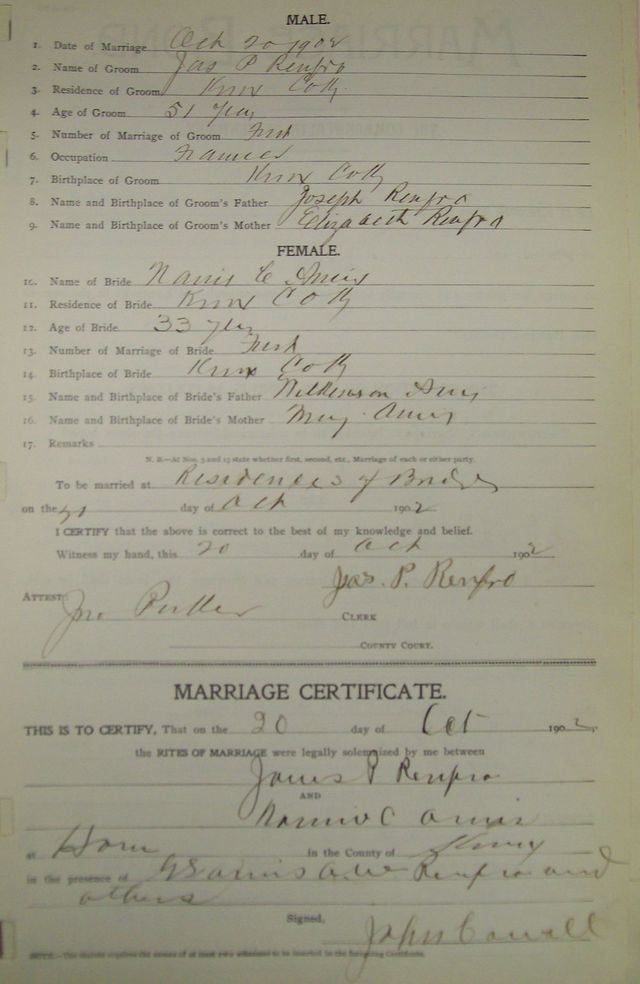 MALE.
1. Date of Marriage Oct 20 1902
2. Name of Groom Jas P Renfro
3. Residence of Groom Knox Co Ky
4. Age of Groom 51 years
5. Number of Marriage of Groom First
6. Occupation Farmer
7. Birthplace of Groom Knox Co Ky
8. Name and Birthplace of Groom's Father Joseph Renfro
9. Name and Birthplace of Groom's Mother Elizabeth Renfro
FEMALE.
10. Name of Bride Nannie C Amis
11. Residence of Bride Knox Co Ky
12. Age of Bride 33 years
13. Number of Marriage of Bride First
14. Birthplace of Bride Knox Co Ky
15. Name and Birthplace of Bride's Father Wilkerson Amis
16. Name and Birthplace of Bride's Mother Mary Amis
17. Remarks
N. B.—At Nos. 5 and 13 state whether first, second, etc., Marriage of each or either party.
To be married at Residence of Bride
on the day of Oct 1902
I CERTIFY that the above is correct to the best of my knowledge and belief.
Witness my hand, this 20 day of Oct 1902
Jas. P. Renfro
ATTEST: Jno
CLERK
COUNTY COURT.
MARRIAGE CERTIFICATE.
THIS IS TO CERTIFY, That on the 20 day of Oct 1902,
the RITES OF MARRIAGE were legally solemnized by me between
James P Renfro
AND
Nannie C Amis
at Home in the County of Knox
in the presence of Renfro and
others
Signed,
John
NOTE.—The statute requires the names of at least two witnesses to be inserted in the foregoing Certificate.